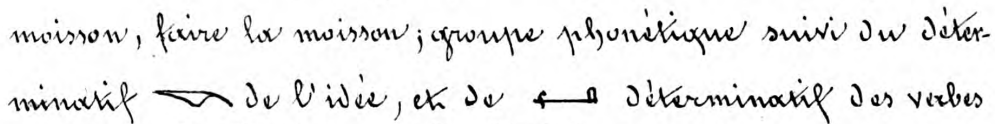 moisson, faire la moisson; groupe phonétique suivi du déter-
minatif de l'idée, et de déterminatif des verbes